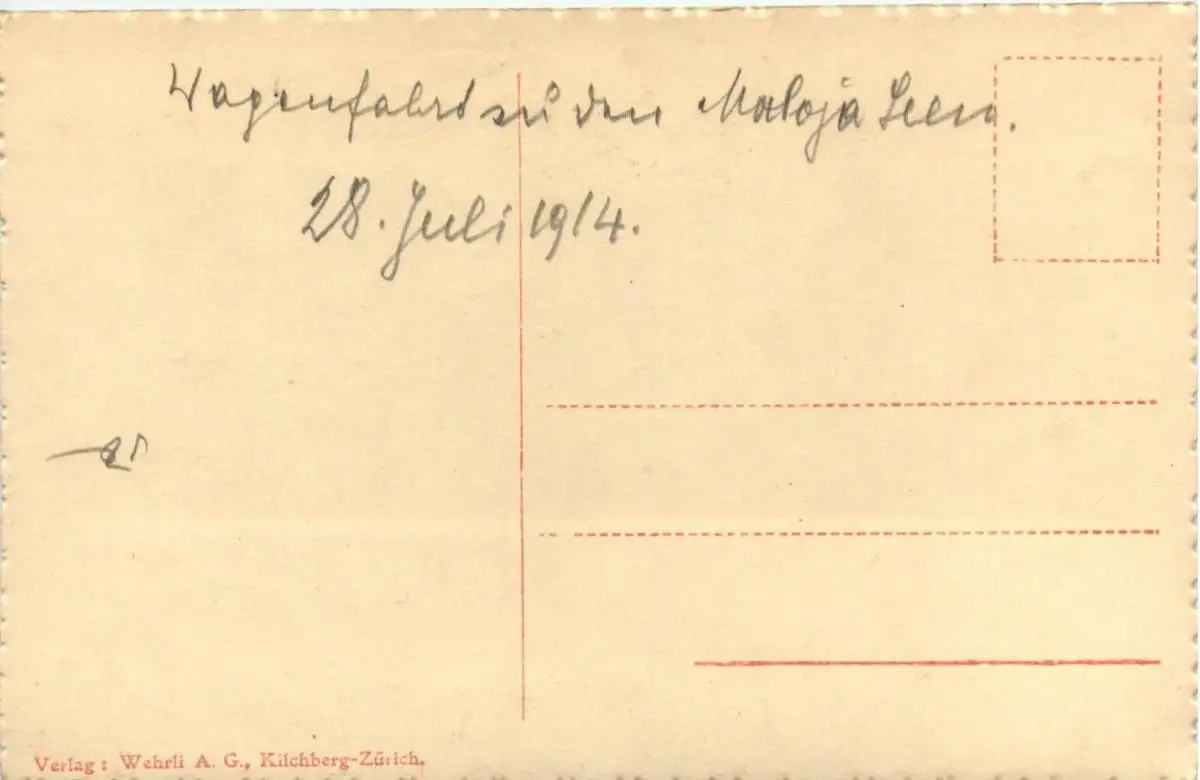 Wagenfahrt zu den Maloja Seen.
28. Juli 1914.
Verlag: Wehrli A. G., Kilchberg-Zürich.